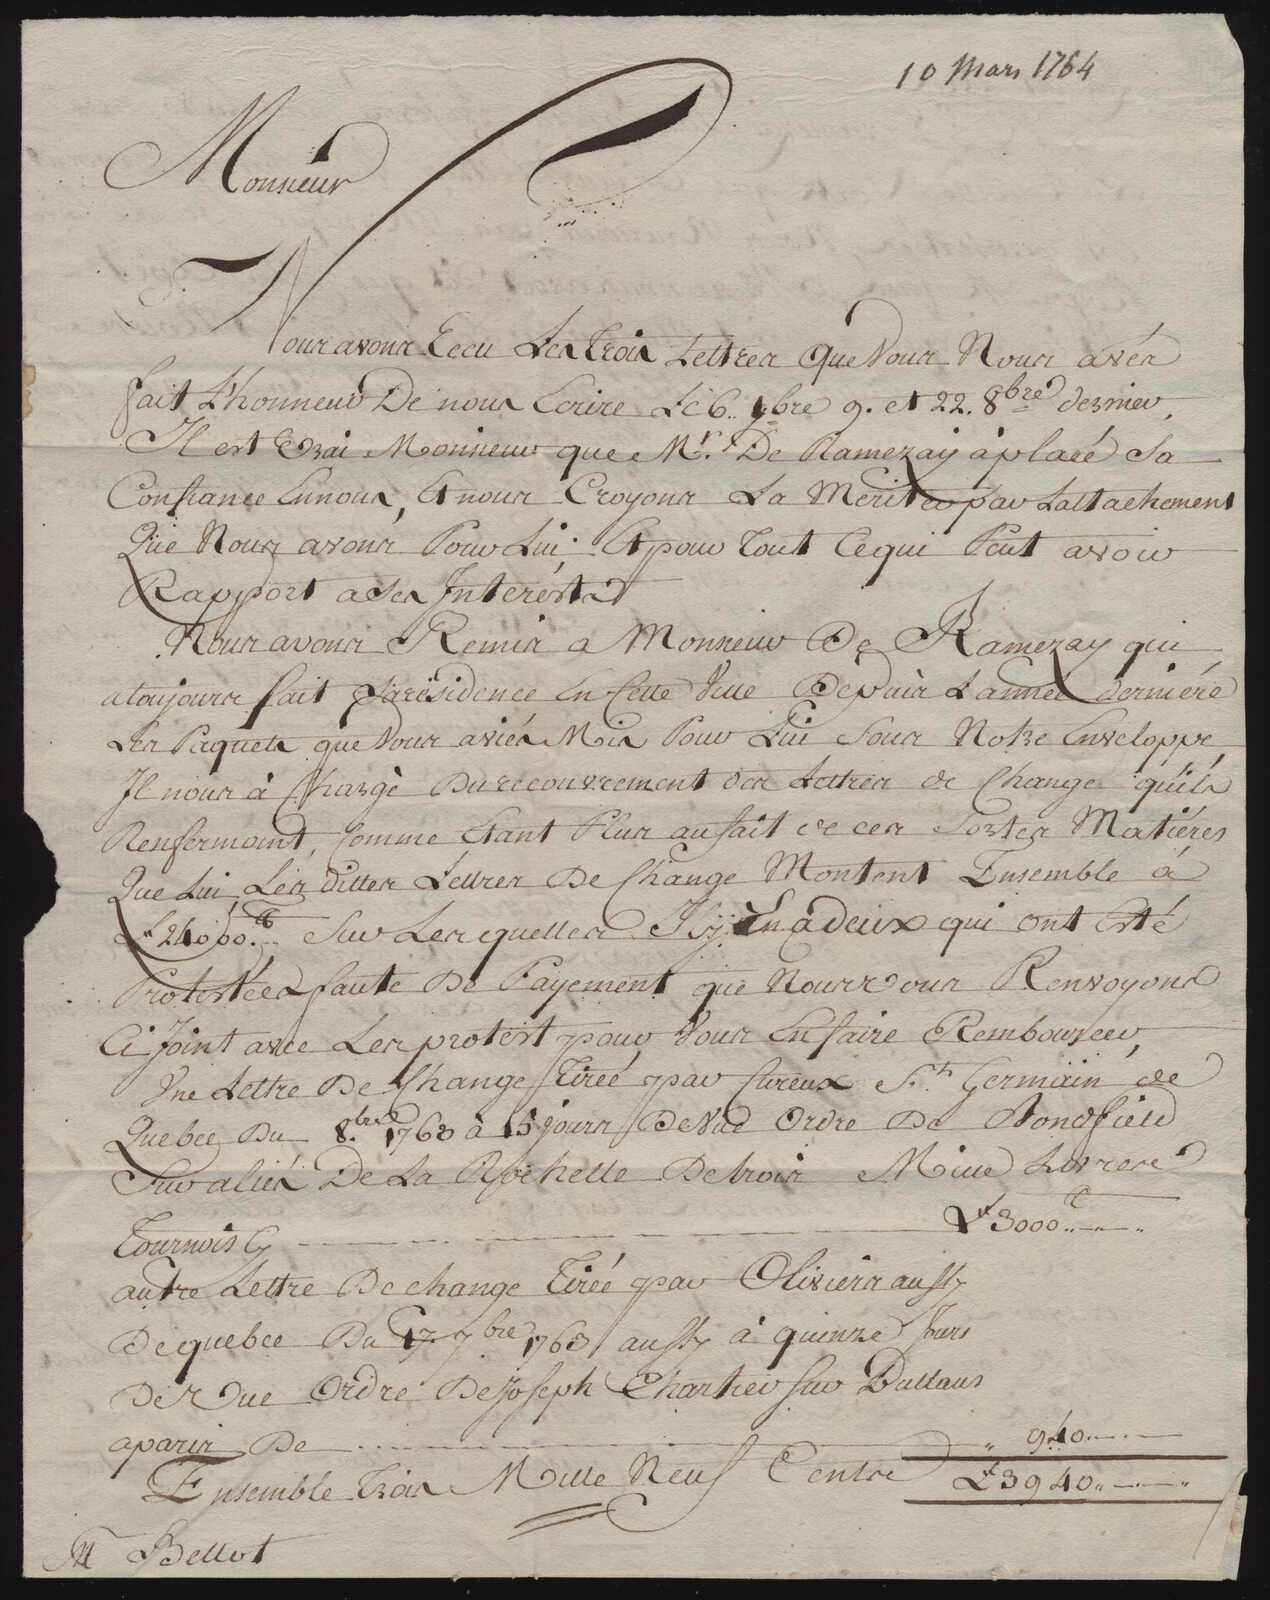 10 Mars 1764
Monsieur
Nous avons Recu Les trois Lettres Que Vous Nous avés
fait L'honneur De nous Ecrire Le 6. 7bre 9. et 22. 8bre dernier.
Il est Vrai Monsieur que Mr. De Ramezay à placé Sa
Confiance Ennous, Et nous Croyons La Meriter par Lattachement
Que Nous avons Pour Lui. Et pour Tout Cequi Peut avoir
Rapport a Ses Interésts
Nous avons Remis a Monsieur De Ramezay qui
atoujours fait Sarésidence En Cette Ville Depuis L'anneé derniére
Les Paquets que Vous aviés Mis Pour Lui Sous Notre Enveloppe,
Il nous à Chargé Du recouvrement des Lettres de Change quils
Renfermoint, Comme Etant Plus aufait de ces Sortes Matiéres
Que Lui, Les dittes Lettres De Change Montent Ensemble à
£ 24000.tt Sur Lesquelles Jl y En a deux qui ont Esté
Protestées faute De Payement que Nous Vous Renvoyons
Ci Joint avec Les protest pour Vous Enfaire Rembourcer,
Une Lettre De Change Tireé par Cureux St. Germain de
Quebec Du 8.bre 1763 à 15 jours DeVue Ordre De Bondfield
Sur aliés De La Rochelle De trois Mille Livres
Tournois Cy £ 3000.tt
autre Lettre De change Tireé par Oliviers aussy
De quebec Du 17 7bre 1763 aussy à quinze Jours
De Vue Ordre De Joseph Chartier sur Dullaus
aparis De 940
Ensemble Trois Mille Neuf Cents £ 3940
M Bellot